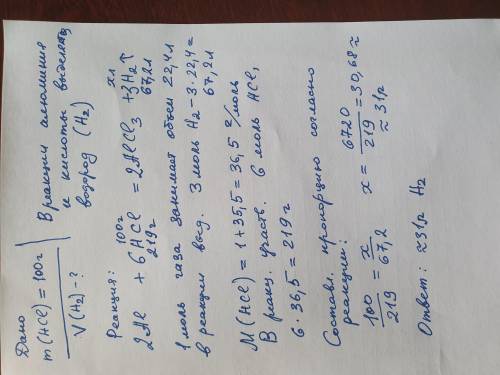 Дано
m(HCl) = 100г
V(H₂) - ?
В реакции алюминия
и кислоты выделяется
водород (H₂)
Реакция:
100г хл
2Al + 6HCl = 2AlCl₃ + 3H₂↑
219г 67,2л
1 моль газа занимает объем 22,4л
в реакции выд. 3 моль H₂ - 3·22,4 =
67,2л
M(HCl) = 1+35,5 = 36,5 г/моль
В реакц. участв. 6 моль HCl,
6·36,5 = 219г
Составл. пропорцию согласно
реакции:
100/219 = x/67,2 x = 6720/219 = 30,68 ≈
≈ 31л
Ответ: ≈31л H₂